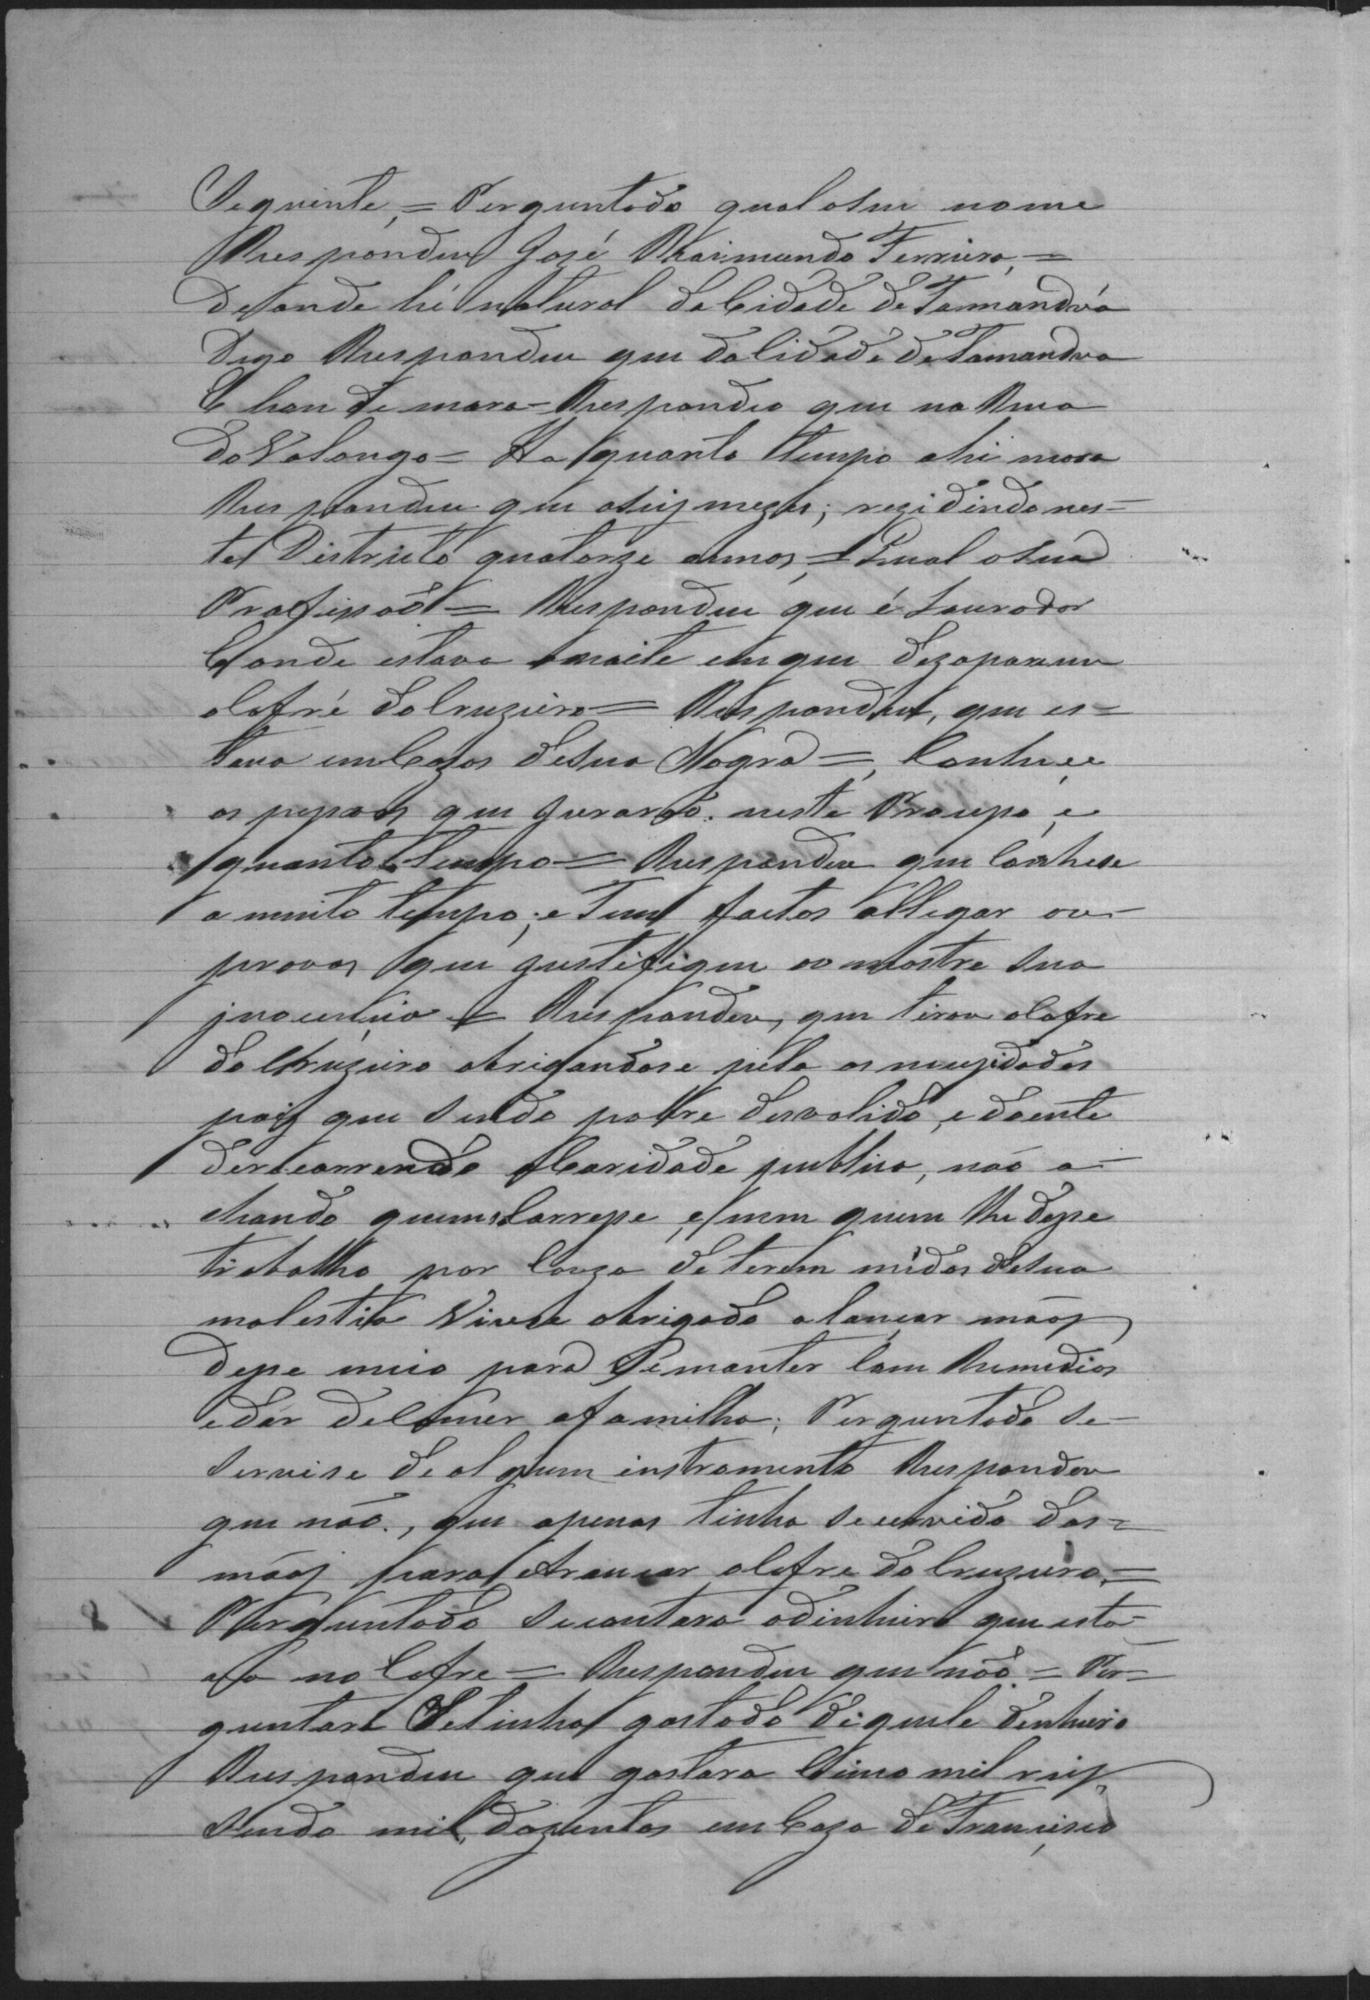 Seguinte, = Perguntado qual o seu nome
Respondeu José Raimundo Ferreira, =
de onde hé natural da Cidade de Tamandoá
Digo Respondeu que da Cidade de Tamandoa
E hon de mora - Respondeo que na Rua
do Valongo = Ha quanto tempo ahi mora
Respondeu que a seis mezes; rezidindo nes-
te Districto quatorze annos, = Qual o sua
Profissaõ = Respondeu que é Laurador
E onde estava anoite em que dezapareceu
o Cofre do Cruzeiro = Respondeu, que es-
teva em Cazas de sua Sogra =, Conhece
as pessoas que jurarão neste Processo, e
quanto tempo = Respondeu que Conhese
a muito tempo; e Tem factos allegar ou
provas que justifiquem ou mostre sua
jnocencia = Respondeu, que tirou o Cofre
do Cruzeiro obrigandose pela as necessidades
pois que sendo pobre desvalido, e doente
decorrendo a Caridade publica, não a-
chando quem Corresse, e nem quem lhe desse
trabalho por Couza de terem mêdos de sua
molestia Viuse obrigado a lançar mãos
desse meio para se manter Com Remedios
e dar de Comer a familha; Perguntado se
servise de algum instromento Respondeu
que não., que apenas tinha se servido das =
mãos para Arancar o Cofre do Cruzeiro, =
Perguntado se contara o dinheiro que esta-
va no Cofre = Respondeu que não = Per-
guntado Se tinha gastado d'iquele denheiro
Respondeu que gastara Cinco mil reis,
sendo mil, dozentos em Caza de Francisco